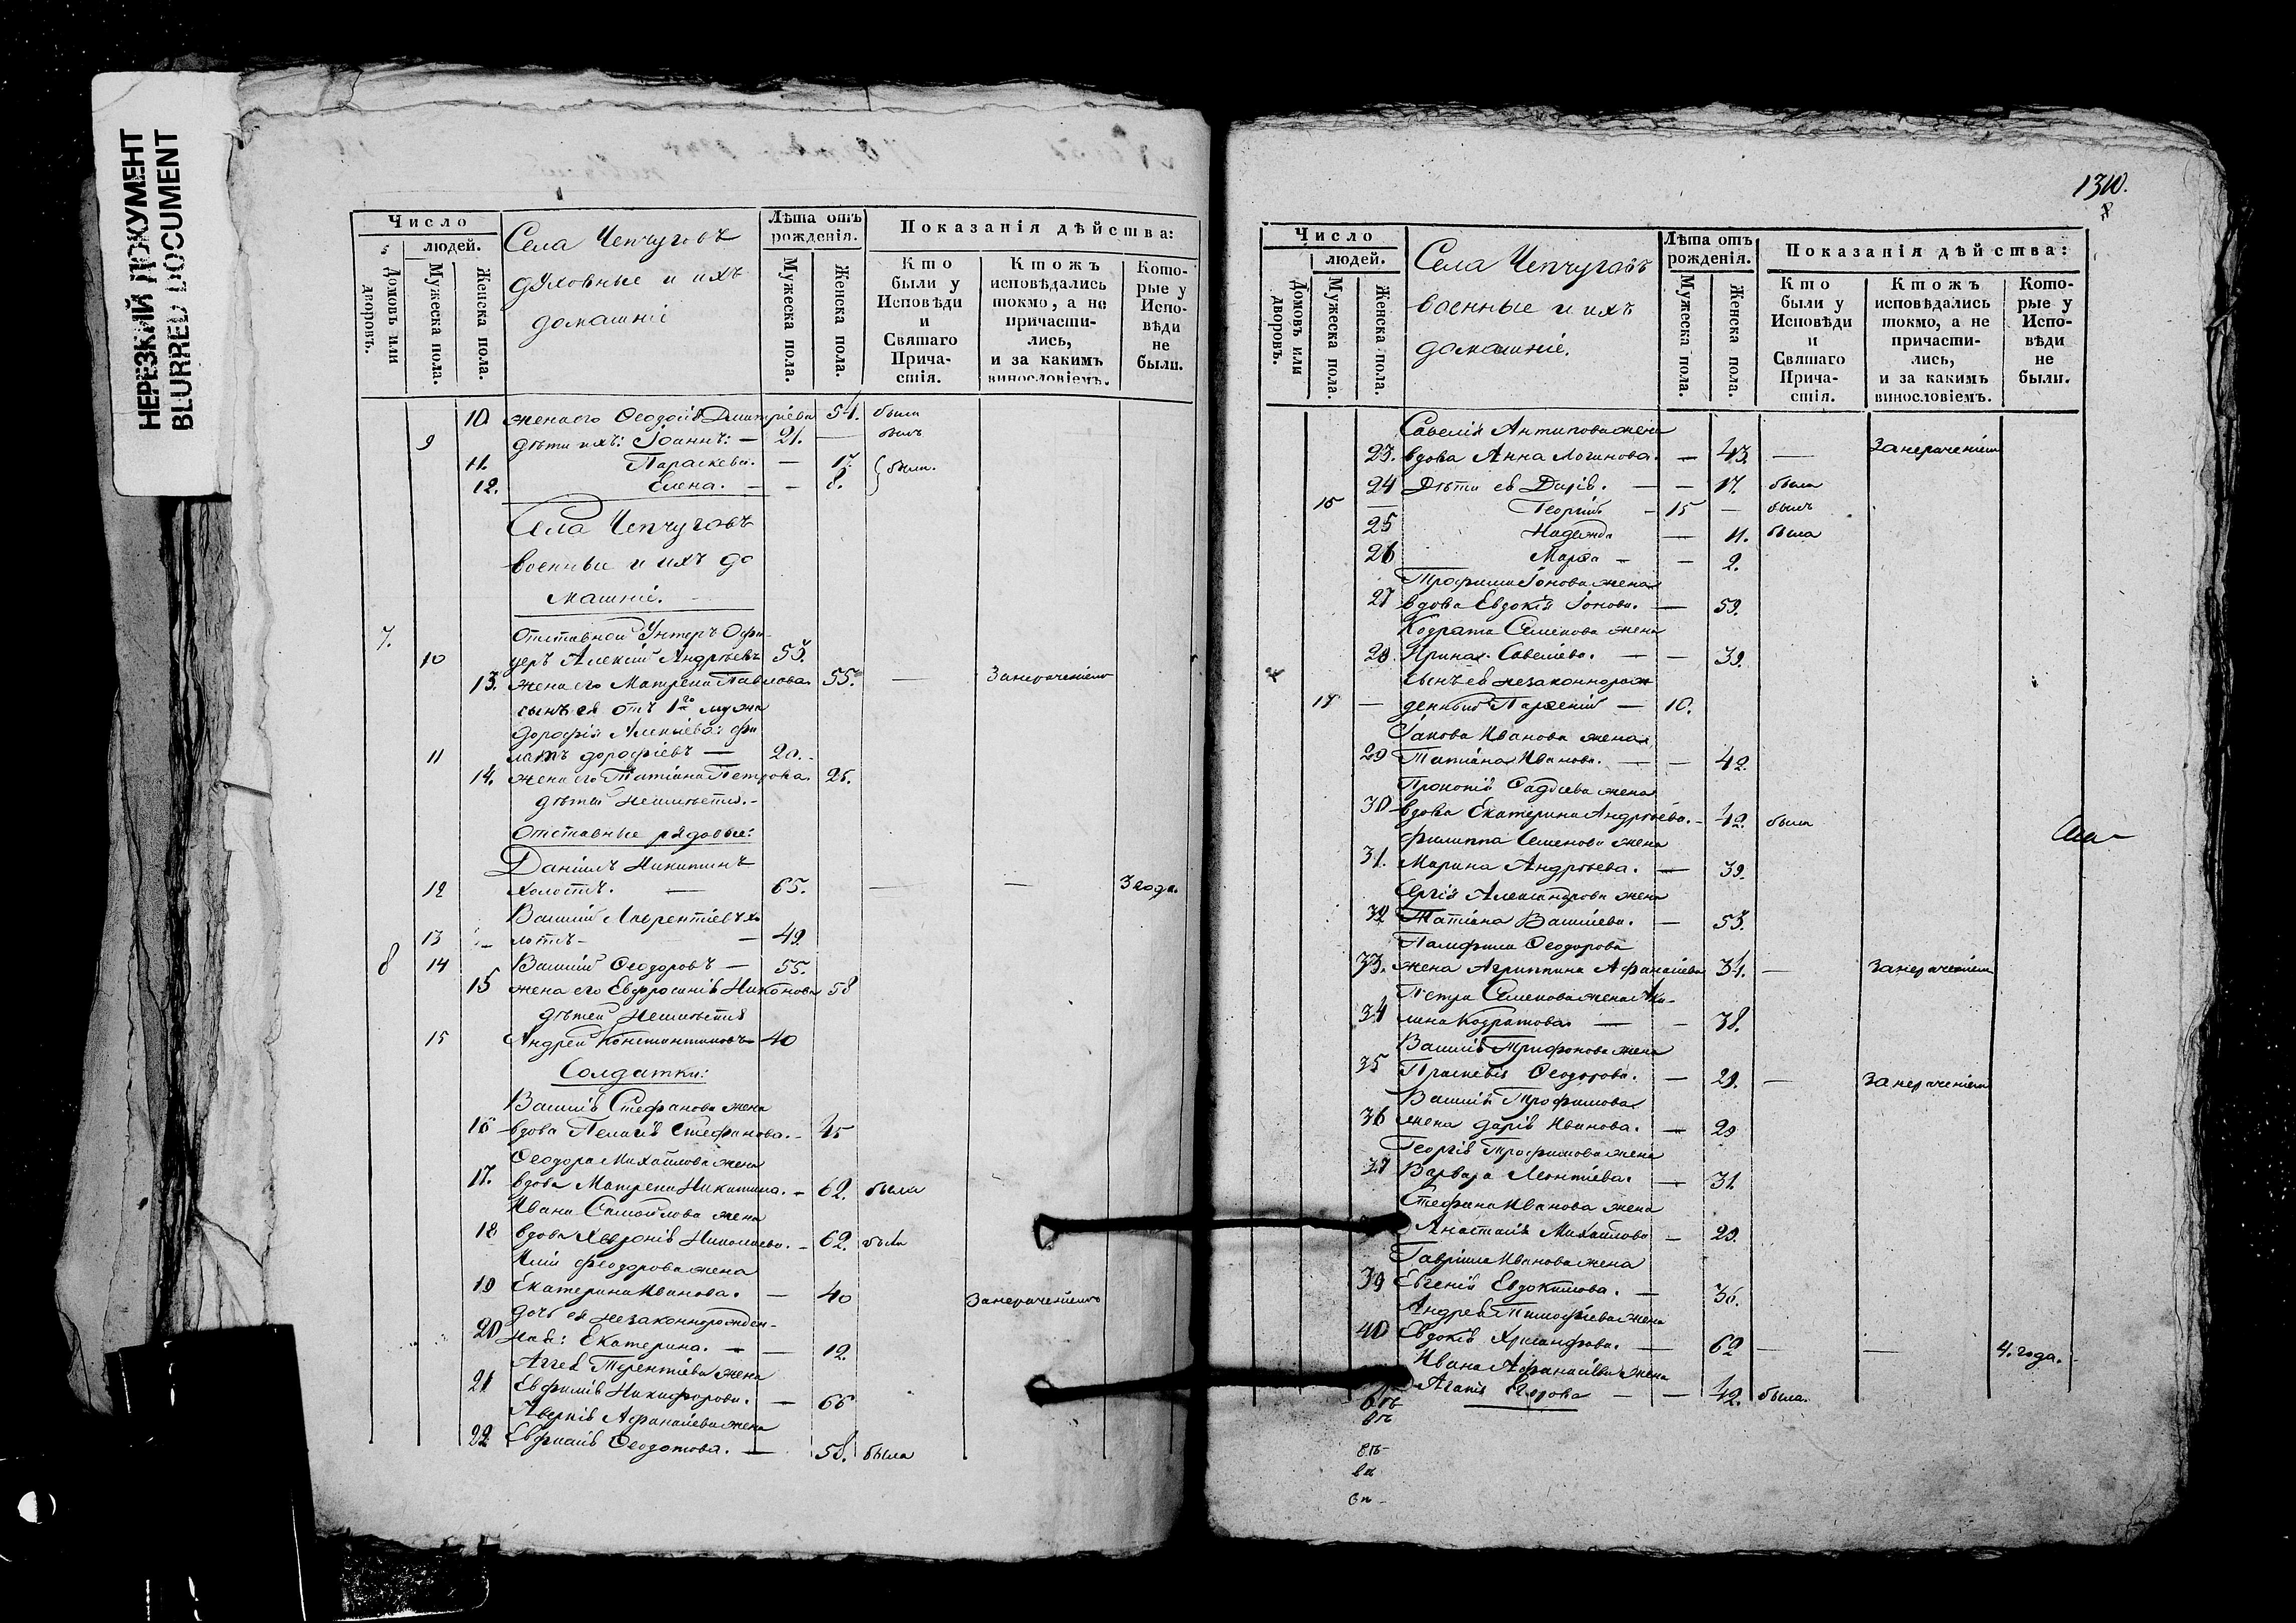 НЕРЕЗКИЙ ДОКУМЕНТ
BLURRED DOCUMENT
Число
людей.
Домовъ или дворовъ.
Мужеска пола.
Женска пола.
Села Чепчуговъ
духовные и ихъ
домашніе
Лѣта отъ рожденія.
Мужеска пола.
Женска пола.
Показанія дѣйства:
Кто были у Исповѣди и Святаго Прича-стія.
Ктожъ исповѣдались токмо, а не причасти-лись, и за какимъ винословіемъ.
Кото-рые у Испо-вѣди не были.
10 жена его Ѳеодосія Дмитріева 54. была
9 дѣти ихъ: Іоаннъ: — 21. — былъ
11. Параскева. — 17. были.
12. Елена. — — 8.
Села Чепчуговъ
военные и ихъ до
машніе.
7. Отставной Унтеръ Офи-
10 церъ Алексій Андреевъ 55.
13. жена его Матрена Павлова. 55. — За нераченіемъ
сынъ ея отъ 1го мужа
Дорофія Алексіева: Фи
11 латъ Дорофіевъ — 20. -
14. жена его Татіана Петрова. 25.
дѣтей неимѣетъ. -
Отставные рядовые:
Даніилъ Никитинъ
12 холостъ. — 65. — — 3 года.
Василій Лаврентіевъ хо
13 лостъ — — 49.
8 14 Василій Ѳеодоровъ — 55.
15 жена его Евфросинія Никонова 58
дѣтей неимѣетъ
15 Андрей Константиновъ — 40
Солдатки:
Василія Стефанова жена
16 вдова Пелагія Стефанова. - 45
Ѳеодора Михайлова жена
17. вдова Матрена Никитина. - 62. была
Ивана Самойлова жена
18 вдова Хевронія Николаева. - 62. была
Иліи Феодорова жена
19 Екатерина Иванова. — 40 За нераченіемъ
дочь ея незаконнорожден-
20 ная: Екатерина. — — 12.
Аггея Терентіева жена
21 Евфимія Никифорова. — 66
Аверкія Афанасіева жена
22 Евфимія Ѳеодотова. — 58. была
1310.
Число
людей.
Домовъ или дворовъ.
Мужеска пола.
Женска пола.
Села Чепчуговъ
военные и ихъ
домашніе.
Лѣта отъ рожденія.
Мужеска пола.
Женска пола.
Показанія дѣйства:
Кто были у Исповѣди и Святаго Прича-стія.
Ктожъ исповѣдались токмо, а не причасти-лись, и за какимъ винословіемъ.
Кото-рые у Испо-вѣди не были.
Савелія Антипова жена
23. вдова Анна Логинова. — 43. — За нераченіемъ
24 Дѣти ея Дарія. — — 17. была
16 — Георгій - 15 — былъ
25 Надежда — 11. была
26 Марѳа — — 2.
Трофима Іонова жена
27 вдова Евдокія Іонова. — 59.
Кодрата Семенова жена
28. Ирина Савеліева. — — 39.
сынъ ея незаконнорож
17 — денный Парѳеній — 10.
Іакова Иванова жена
29 Татіана Иванова. — — 42.
Прокопія Фадѣева жена
30 вдова Екатерина Андреева. - 42. была
Филиппа Семенова жена
31. Марина Андреева. — 39.
Сергія Александрова жена
32 Татіана Василіева. — 53.
Памфила Ѳеодорова
33. жена Агриппина Афанасіева 34. — За нераченіемъ
Петра Семенова жена Аку-
34 лина Кодратова — — 38.
Василія Трифонова жена
35 Праскевія Ѳеодорова. — 29. — За нераченіемъ
Василія Трофимова
36 жена Дарія Иванова. — 29
Георгія Трофимова жена
37 Варвара Леонтіева. — 31.
Стефана Иванова жена
Анастасія Михайлова — 29.
Гавріила Иванова жена
39 Евгенія Евдокимова. — 36.
Андрея Тимофіева жена
40 Евдокія Хрисанфова. — 62 — — 4. года.
Ивана Афанасіева жена
Агапія Егорова — — 42. была.